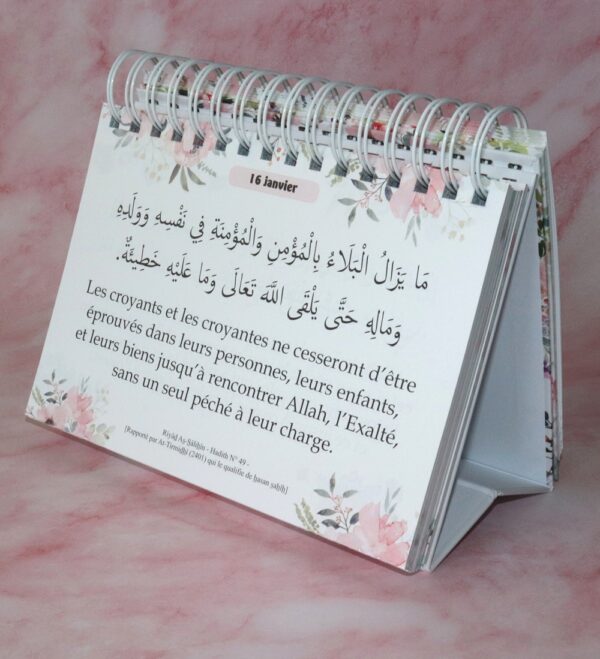 16 janvier
مَا يَزَالُ الْبَلَاءُ بِالْمُؤْمِنِ وَالْمُؤْمِنَةِ فِي نَفْسِهِ وَوَلَدِهِ
وَمَالِهِ حَتَّى يَلْقَى اللَّهَ تَعَالَى وَمَا عَلَيْهِ خَطِيئَةٌ.
Les croyants et les croyantes ne cesseront d´être
éprouvés dans leurs personnes, leurs enfants,
et leurs biens jusqu´à rencontrer Allah, l´Exalté,
sans un seul péché à leur charge.
Riyâḍ Aṣ-Ṣâliḥîn - Hadith N° 49 -
[Rapporté par At-Tirmiḏhî (2401) qui le qualifie de ḥasan ṣaḥîḥ]